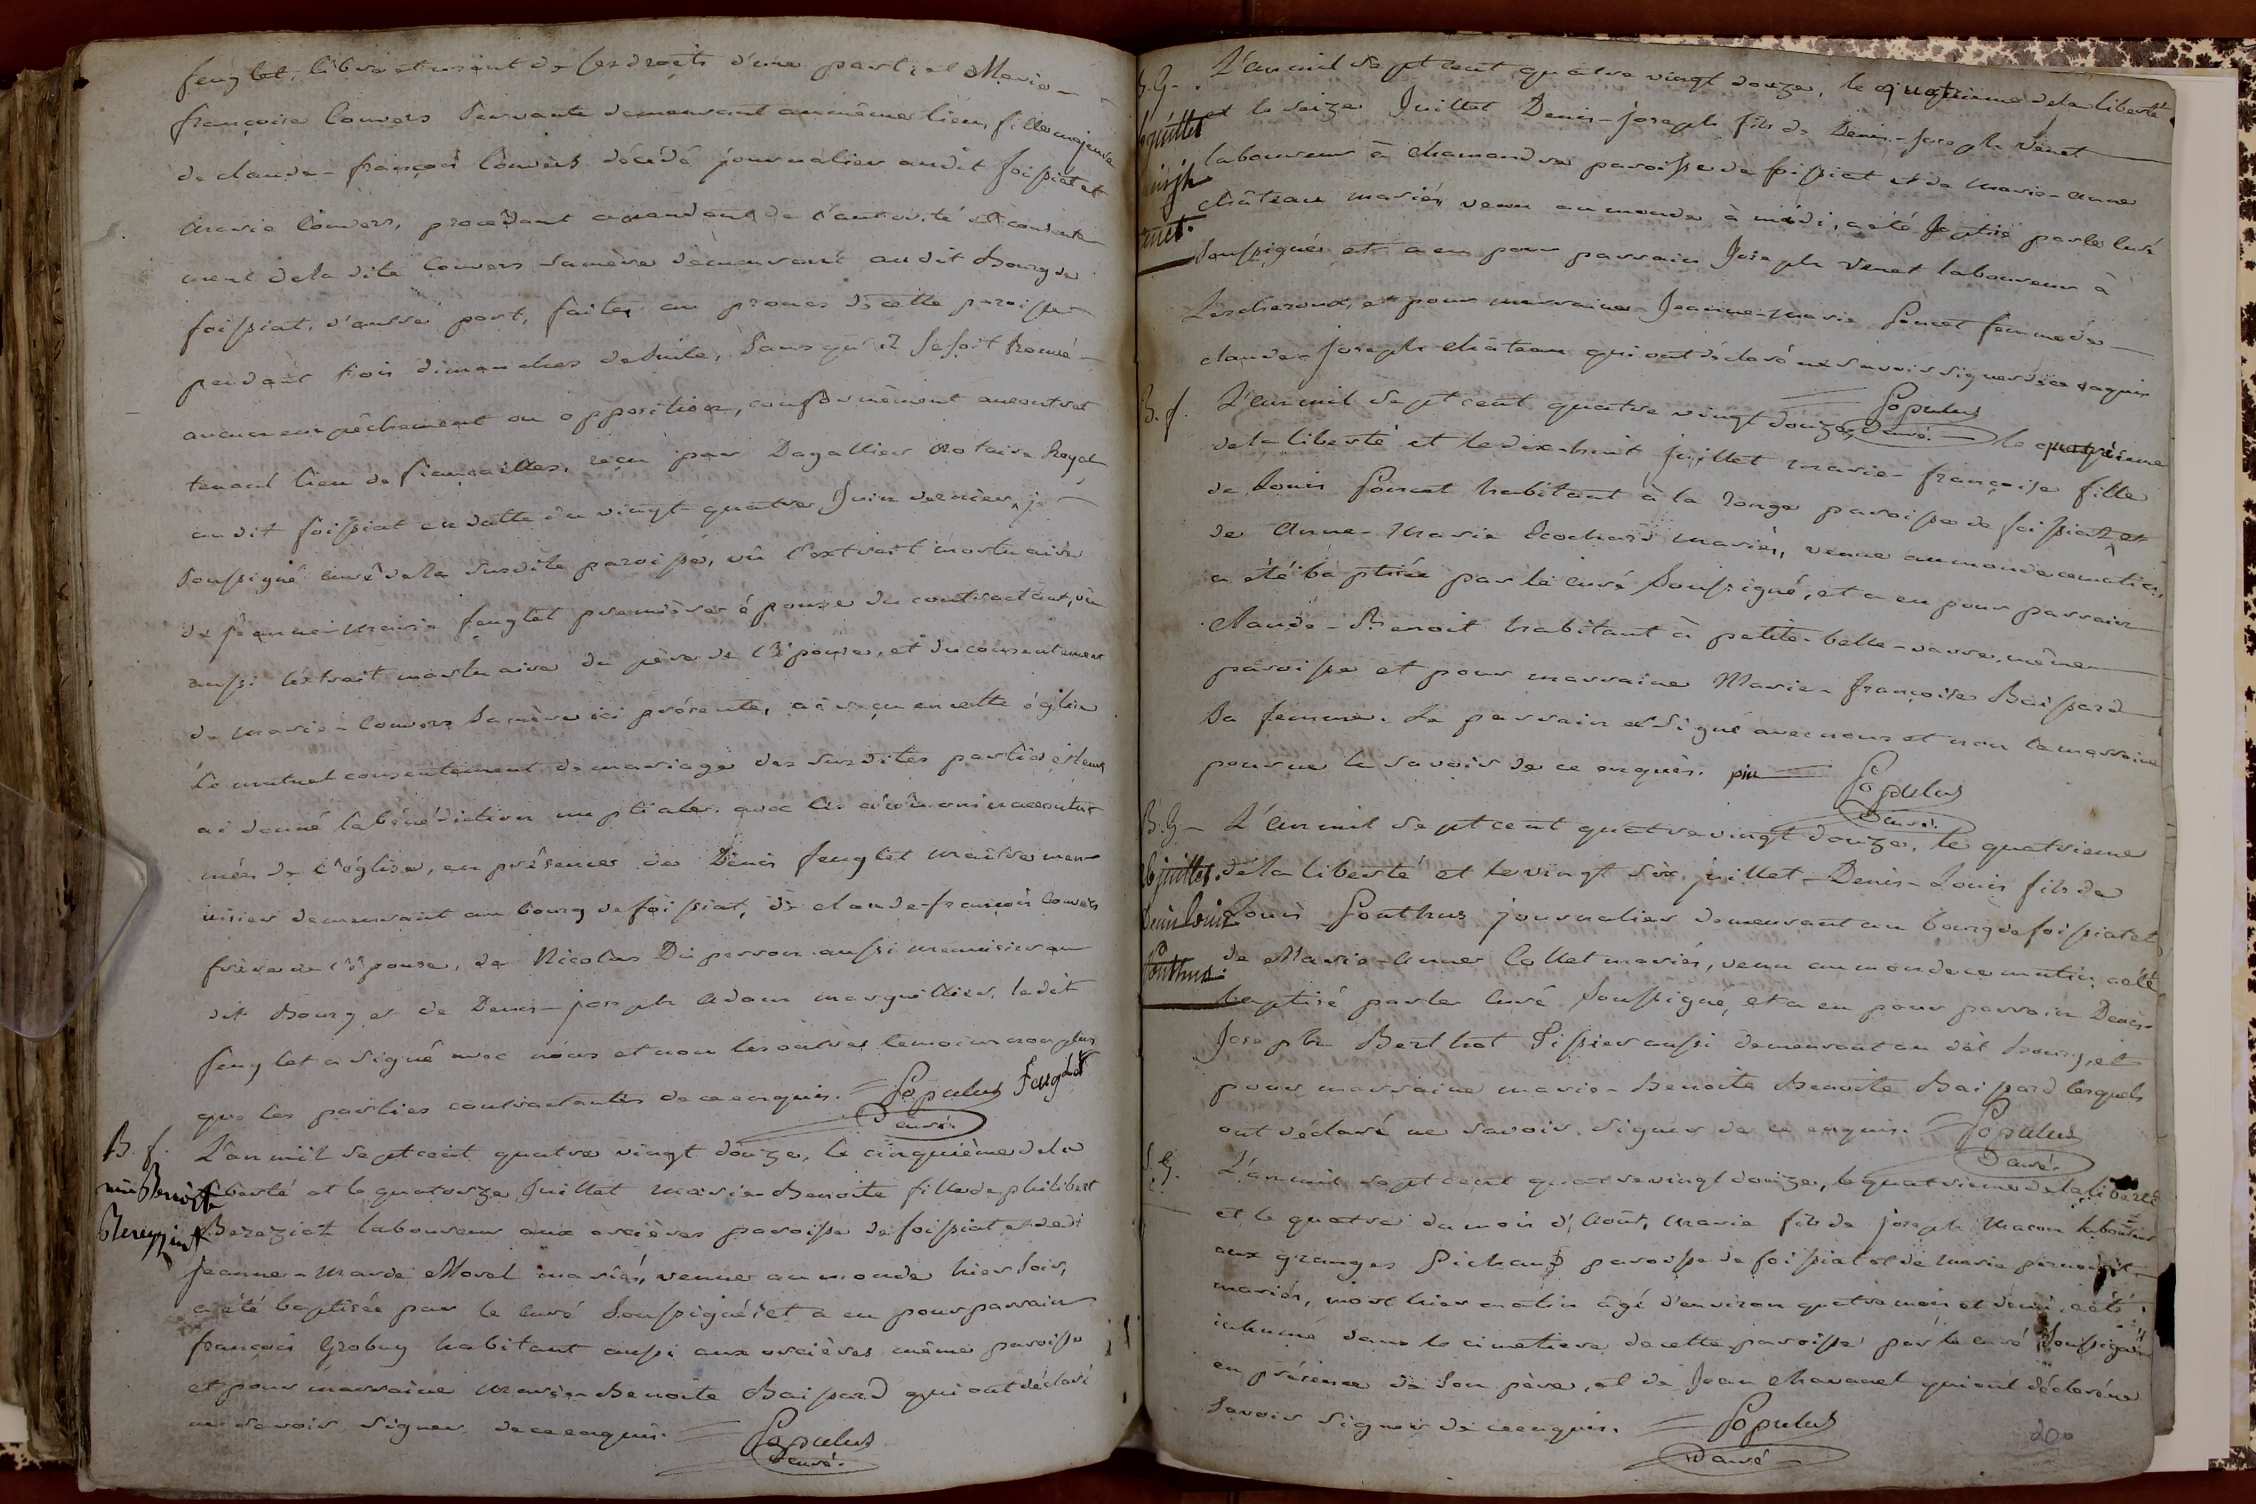 feuglet, libre et usant de ses droits d'une part; et Marie-
françoise Convers servante demeurant au même lieu, fille majeure
de claude-françois Convers décédé journalier audit foissiat et
Marie Convers, procédant de l'autorité et consente
ment de la dite Convers sa mère demeurant au dit Bourg de
foissiat, d'autre part, faites au prones de cette paroisse
pendant trois dimanches de suite, sans qu'il se soit trouvé
aucun empêchement ou opposition, conformément au contrat
tenant lieu de fiançailles, reçu par Dagallier Notaire Royal
au dit foissiat en datte du vingt-quatre Juin dernier, je
soussigné curé de la susdite paroisse, vû l'extrait mortuaire
de jeanne-marie feuglet première épouse du contractant, vû
aussi l'extrait mortuaire du père de l'épouse, et du consentement
de marie-Convers sa mère ici présente, ai reçu en cette église
le mutuel consentement de mariage des susdites parties et leur
ai donné la bénédiction nuptiale avec les cérémonies accoutu
mées de l'église, en présence de Denis feuglet maître menu
isier demeurant au bourg de foissiat, de claude-françois Convers
frère de l'épouse, de Nicolas Duperron aussi menuisier au
dit Bourg et de Denis-joseph Adam marguillier, ledit
feuglet a signé avec nous et non les autres témoins non plus
que les parties contractantes de ce enquis. Populus feuglet
curé.
B. f. L'an mil sept cent quatre vingt douze, le cinquième de la
mie Benoite liberté et le quatorze Juillet Marie-Benoite fille de philibert
Bereyziat Bereziat laboureur aux orcières paroisse de foissiat et de
jeanne-Marie Morel mariés, venue au monde hier soir,
a été baptisée par le curé soussigné; et a eu pour parrain
françois Grobuy habitant aussi aux orcières même paroisse
et pour marraine Marie-Benoite Baissard qui ont déclaré
ne savoir signer de ce enquis. Populus
curé.
B. G. L'an mil sept cent quatre vingt douze, le quatrieme de la liberté
juillet et le seize Juillet Denis-joseph fils de Denis-joseph Venet
laboureur à chamandre paroisse de foissiat et de marie-anne
château mariés, venu au monde à midi, a été baptisé par le curé
soussigné et a eu pour parrain Joseph Venet laboureur à
Lescheroux, et pour marraine Jeanne-marie Poncet femme de
claude-joseph château qui ont déclaré ne savoir signer de ce enquis
Populus
curé.
B. f. L'an mil sept cent quatre vingt douze, le quatrieme
de la liberté et le dix-huit juillet marie-françoise fille
de Louis Poncet habitant à la ronge paroisse de foissiat et
de Anne-Marie Rochard mariés, venue au monde ce matin,
a été baptisée par le curé soussigné, et a eu pour parrain
Claude-Benoit habitant à petite-belle-varre, même
paroisse et pour marraine Marie-françoise Baissard
sa femme. Le parrain a signé avec nous et non la marraine
pour ne le savoir de ce enquis. Populus
curé.
B. G. L'an mil sept cent quatre vingt douze, le quatrieme
26 juillet. de la liberté et le vingt six juillet Denis-Louis fils de
Denis Louis Louis Ponthus journalier demeurant au bourg de foissiat et
Ponthus. de Marie-Anne Collet mariés, venu au monde ce matin, a été
baptisé par le curé soussigné, et a eu pour parrain Denis-
Joseph Berthot Tissier aussi demeurant au dit bourg, et
pour marraine marie-Benoite Benoite Baissard lesquels
ont déclaré ne savoir signer de ce enquis. Populus
curé.
S. G. L'an mil sept cent quatre vingt douze, le quatrieme de la liberté
et le quatre du mois d'Août, Marie fils de joseph Macon laboureur
aux granges Pichaud paroisse de foissiat et de marie
mariés, mort hier matin âgé d'environ quatre mois et demi, a été
inhumé dans le cimetiere de cette paroisse par le curé soussigné
en présence de son père, et de Jean Chavanel qui ont déclaré ne
savoir signer de ce enquis. Populus
curé
200